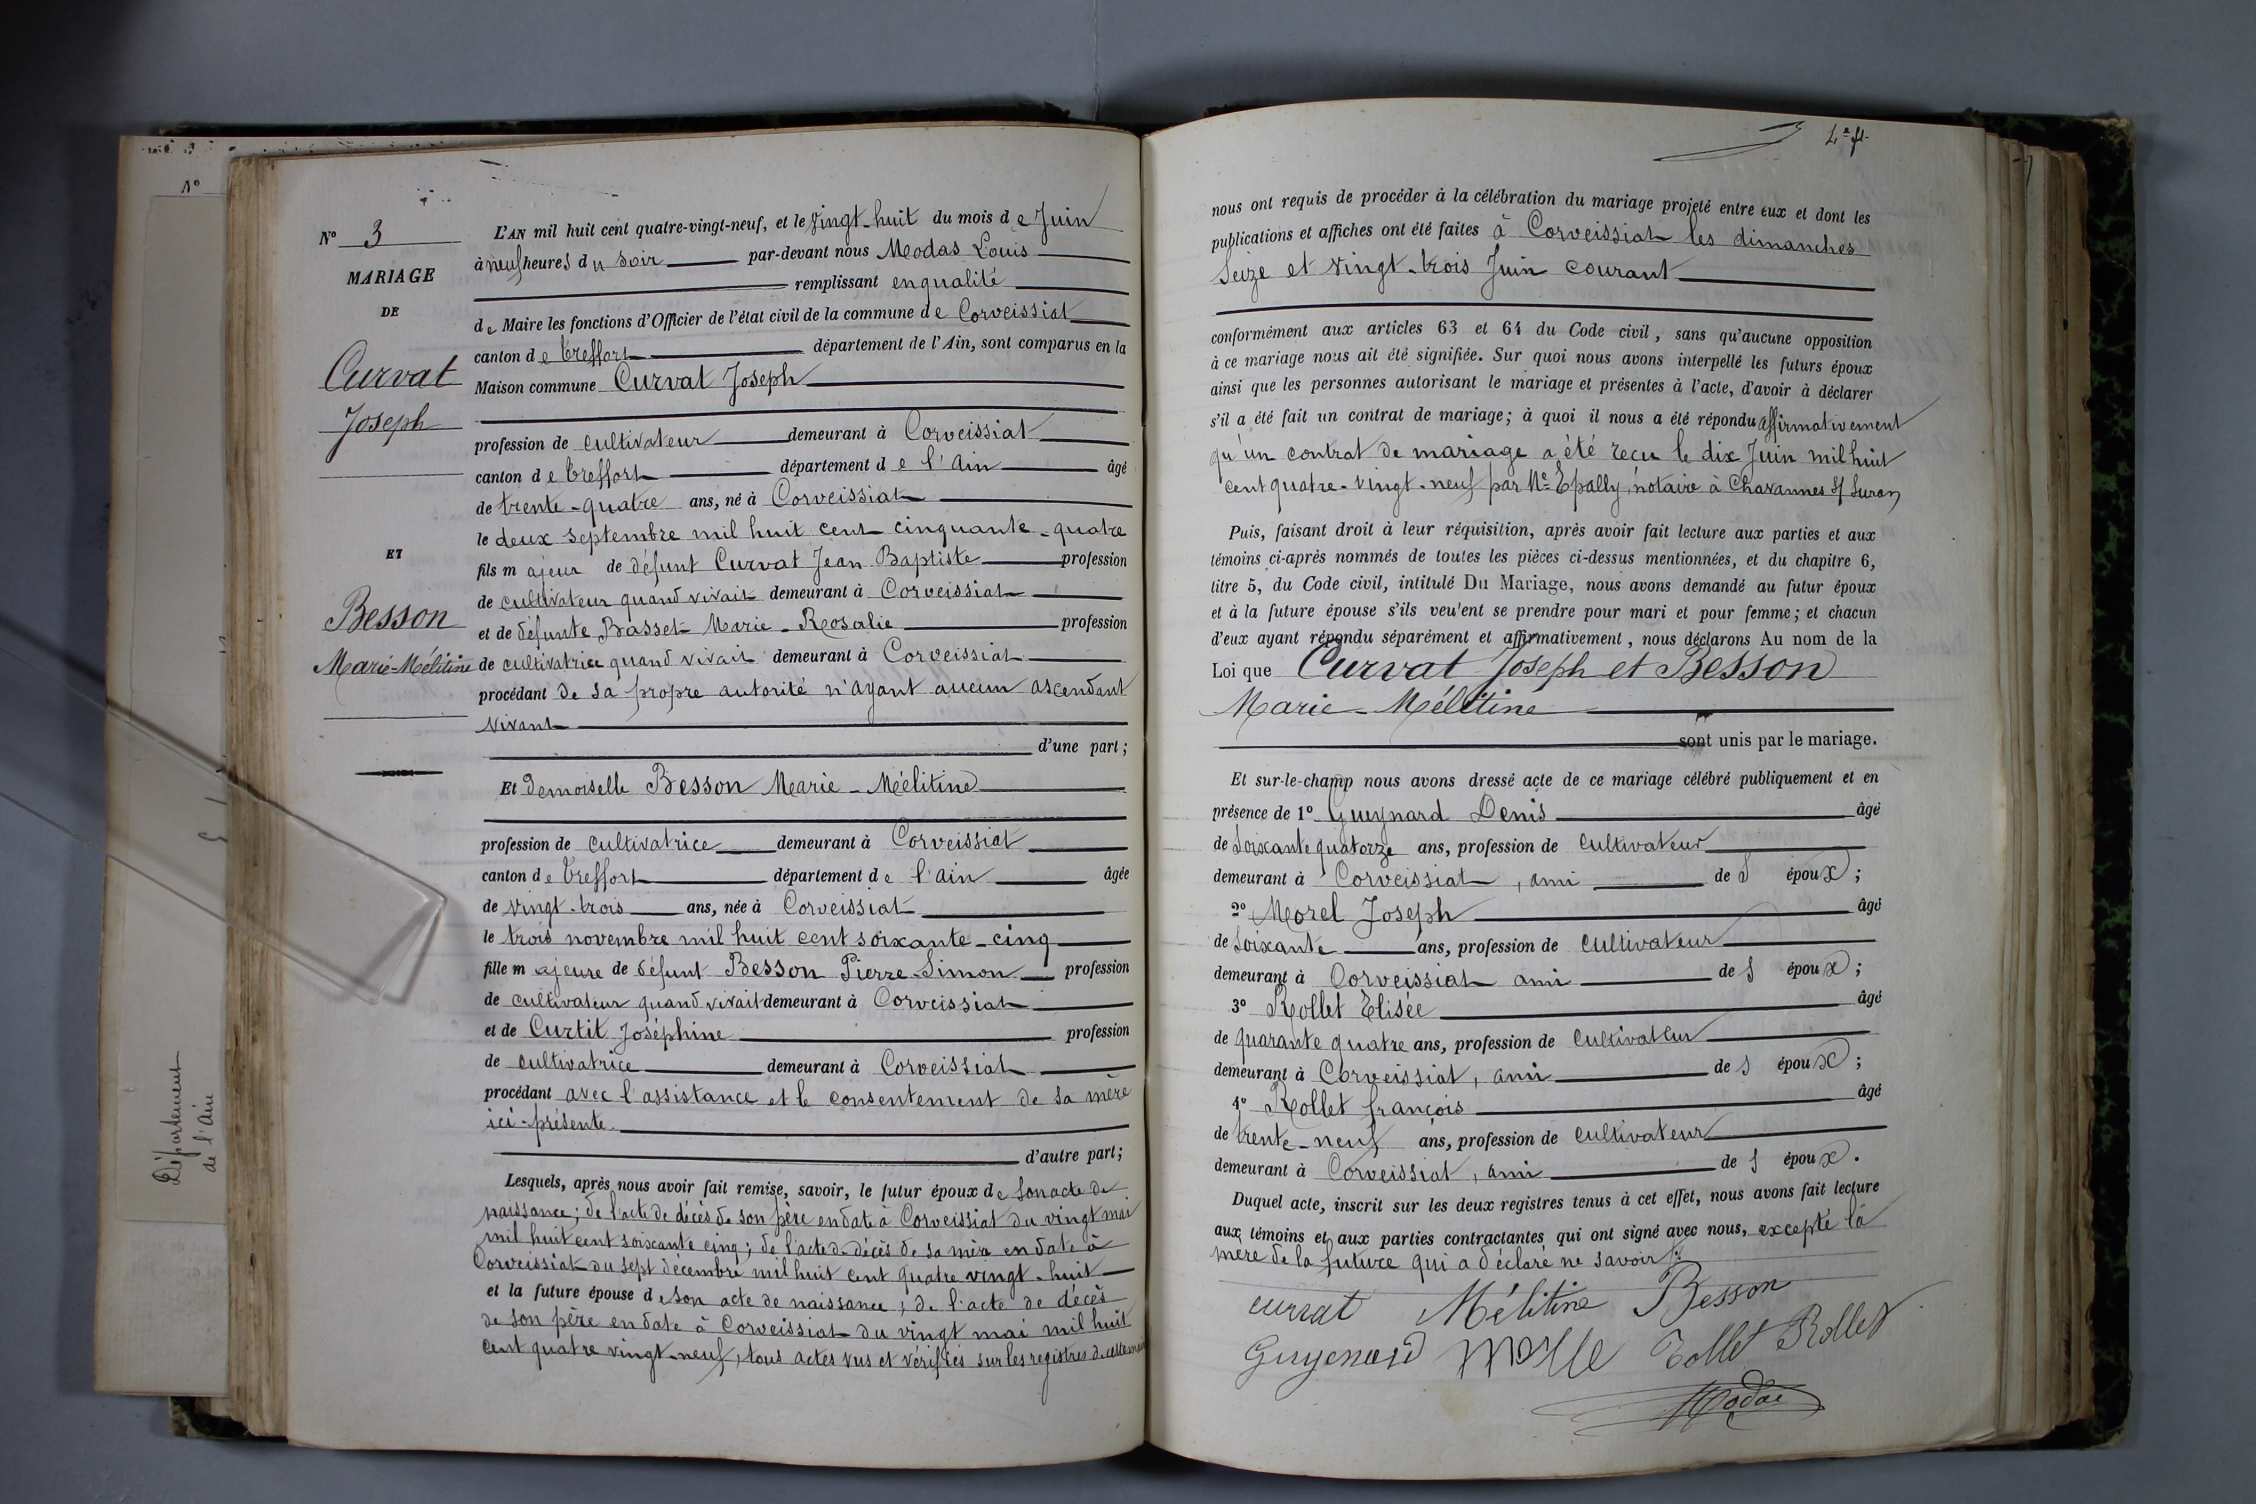 Nº
Département
de l'Ain
Nº 3
MARIAGE
DE
Curvat
Joseph
ET
Besson
Marie-Mélitine
L'AN mil huit cent quatre-vingt-neuf, et le vingt-huit du mois de Juin
à neuf heures du soir par-devant nous Modas Louis
remplissant en qualité
de Maire les fonctions d'Officier de l'état civil de la commune de Corveissiat
canton de Treffort département de l'Ain, sont comparus en la
Maison commune Curvat Joseph
profession de cultivateur demeurant à Corveissiat
canton de Treffort département de l'Ain âgé
de trente-quatre ans, né à Corveissiat
le deux septembre mil huit cent cinquante-quatre
fils majeur de défunt Curvat Jean Baptiste profession
de cultivateur quand vivait demeurant à Corveissiat
et de défunte Basset Marie-Rosalie profession
de cultivatrice quand vivait demeurant à Corveissiat
procédant de sa propre autorité n'ayant aucun ascendant
vivant
d'une part;
Et demoiselle Besson Marie-Mélitine
profession de cultivatrice demeurant à Corveissiat
canton de Treffort département de l'ain âgée
de vingt-trois ans, née à Corveissiat
le trois novembre mil huit cent soixante-cinq
fille majeure de défunt Besson Pierre-Simon profession
de cultivateur quand vivait demeurant à Corveissiat
et de Curtit Joséphine profession
de cultivatrice demeurant à Corveissiat
procédant avec l'assistance et le consentement de sa mère
ici-présente
d'autre part;
Lesquels, après nous avoir fait remise, savoir, le futur époux de son acte de
naissance; de l'acte de décès de son père en date à Corveissiat du vingt mai
mil huit cent soixante cinq; de l'acte de décès de sa mère en date à
Corveissiat du sept décembre mil huit cent quatre vingt-huit
et la future épouse de son acte de naissance; de l'acte de décès
de son père en date à Corveissiat du vingt mai mil huit
cent quatre vingt-neuf, tous actes vus et vérifiés sur les registres de cette
4e f.
nous ont requis de procéder à la célébration du mariage projeté entre eux et dont les
publications et affiches ont été faites à Corveissiat les dimanches
Seize et vingt-trois Juin courant
conformément aux articles 63 et 64 du Code civil, sans qu'aucune opposition
à ce mariage nous ait été signifiée. Sur quoi nous avons interpellé les futurs époux
ainsi que les personnes autorisant le mariage et présentes à l'acte, d'avoir à déclarer
s'il a été fait un contrat de mariage; à quoi il nous a été répondu affirmativement
qu'un contrat de mariage a été reçu le dix Juin mil huit
cent quatre-vingt-neuf par Me Epally, notaire à Chavannes s/ Suran
Puis, faisant droit à leur réquisition, après avoir fait lecture aux parties et aux
témoins ci-après nommés de toutes les pièces ci-dessus mentionnées, et du chapitre 6,
titre 5, du Code civil, intitulé Du Mariage, nous avons demandé au futur époux
et à la future épouse s'ils veu'ent se prendre pour mari et pour femme; et chacun
d'eux ayant répondu séparément et affirmativement, nous déclarons Au nom de la
Loi que Curvat Joseph et Besson
Marie-Mélitine
sont unis par le mariage.
Et sur-le-champ nous avons dressé acte de ce mariage célébré publiquement et en
présence de 1º Gueynard Denis âgé
de Soixante quatorze ans, profession de cultivateur
demeurant à Corveissiat, ami des époux;
2º Morel Joseph âgé
de Soixante ans, profession de cultivateur
demeurant à Corveissiat ami des époux;
3º Rollet Elisée âgé
de quarante quatre ans, profession de cultivateur
demeurant à Corveissiat, ami des époux;
4º Rollet françois âgé
de trente-neuf ans, profession de cultivateur
demeurant à Corveissiat, ami des époux.
Duquel acte, inscrit sur les deux registres tenus à cet effet, nous avons fait lecture
aux témoins et aux parties contractantes qui ont signé avec nous, excepté la
mère de la future qui a déclaré ne savoir
curvat Mélitine Besson
Rollet